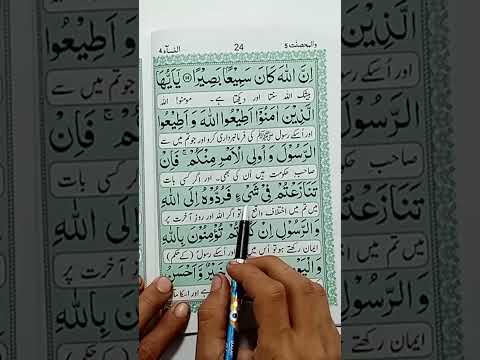 والمحصنت 5 24 النسآء 4
اِنَّ اللّٰهَ كَانَ سَمِیْعًۢا بَصِیْرًا ﴿۵۸﴾ یٰۤاَیُّهَا
بیشک اللہ سنتا اور دیکھتا ہے۔ مومنو! اللہ
الَّذِیْنَ اٰمَنُوْۤا اَطِیْعُوا اللّٰهَ وَاَطِیْعُوا
اور اُسکے رسول ﷺ کی فرمانبرداری کرو اور جو تم میں سے
الرَّسُوْلَ وَاُولِی الْاَمْرِ مِنْكُمْ ۚ فَاِنْ
صاحب حکومت ہیں اُن کی بھی۔ اور اگر کسی بات
تَنَازَعْتُمْ فِیْ شَیْءٍ فَرُدُّوْهُ اِلَی اللّٰهِ
میں تم میں اختلاف واقع تو اگر اللہ اور روز آخرت پر
وَالرَّسُوْلِ اِنْ تُؤْمِنُوْنَ بِاللّٰهِ
ایمان رکھتے ہو تو اُس میں اور اُسکے رسول (کے حکم)
خَیْرٌ وَّاَحْسَنُ
ہے اور اسکا